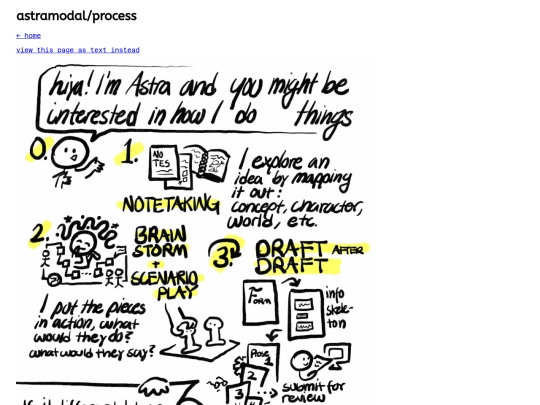 astramodal/process
← home
view this page as text instead
hiya! I'm Astra and you might be
interested in how I do things
0.
1.
NO
TES
NOTETAKING
I explore an
idea by mapping
it out:
concept, character,
world, etc.
2.
BRAIN
STORM
+
SCENARIO
PLAY
I put the pieces
in action, what
would they do?
what would they say?
3.
DRAFT AFTER
DRAFT
Form
info
skele-
ton
Prose
1
2
3
submit for
review